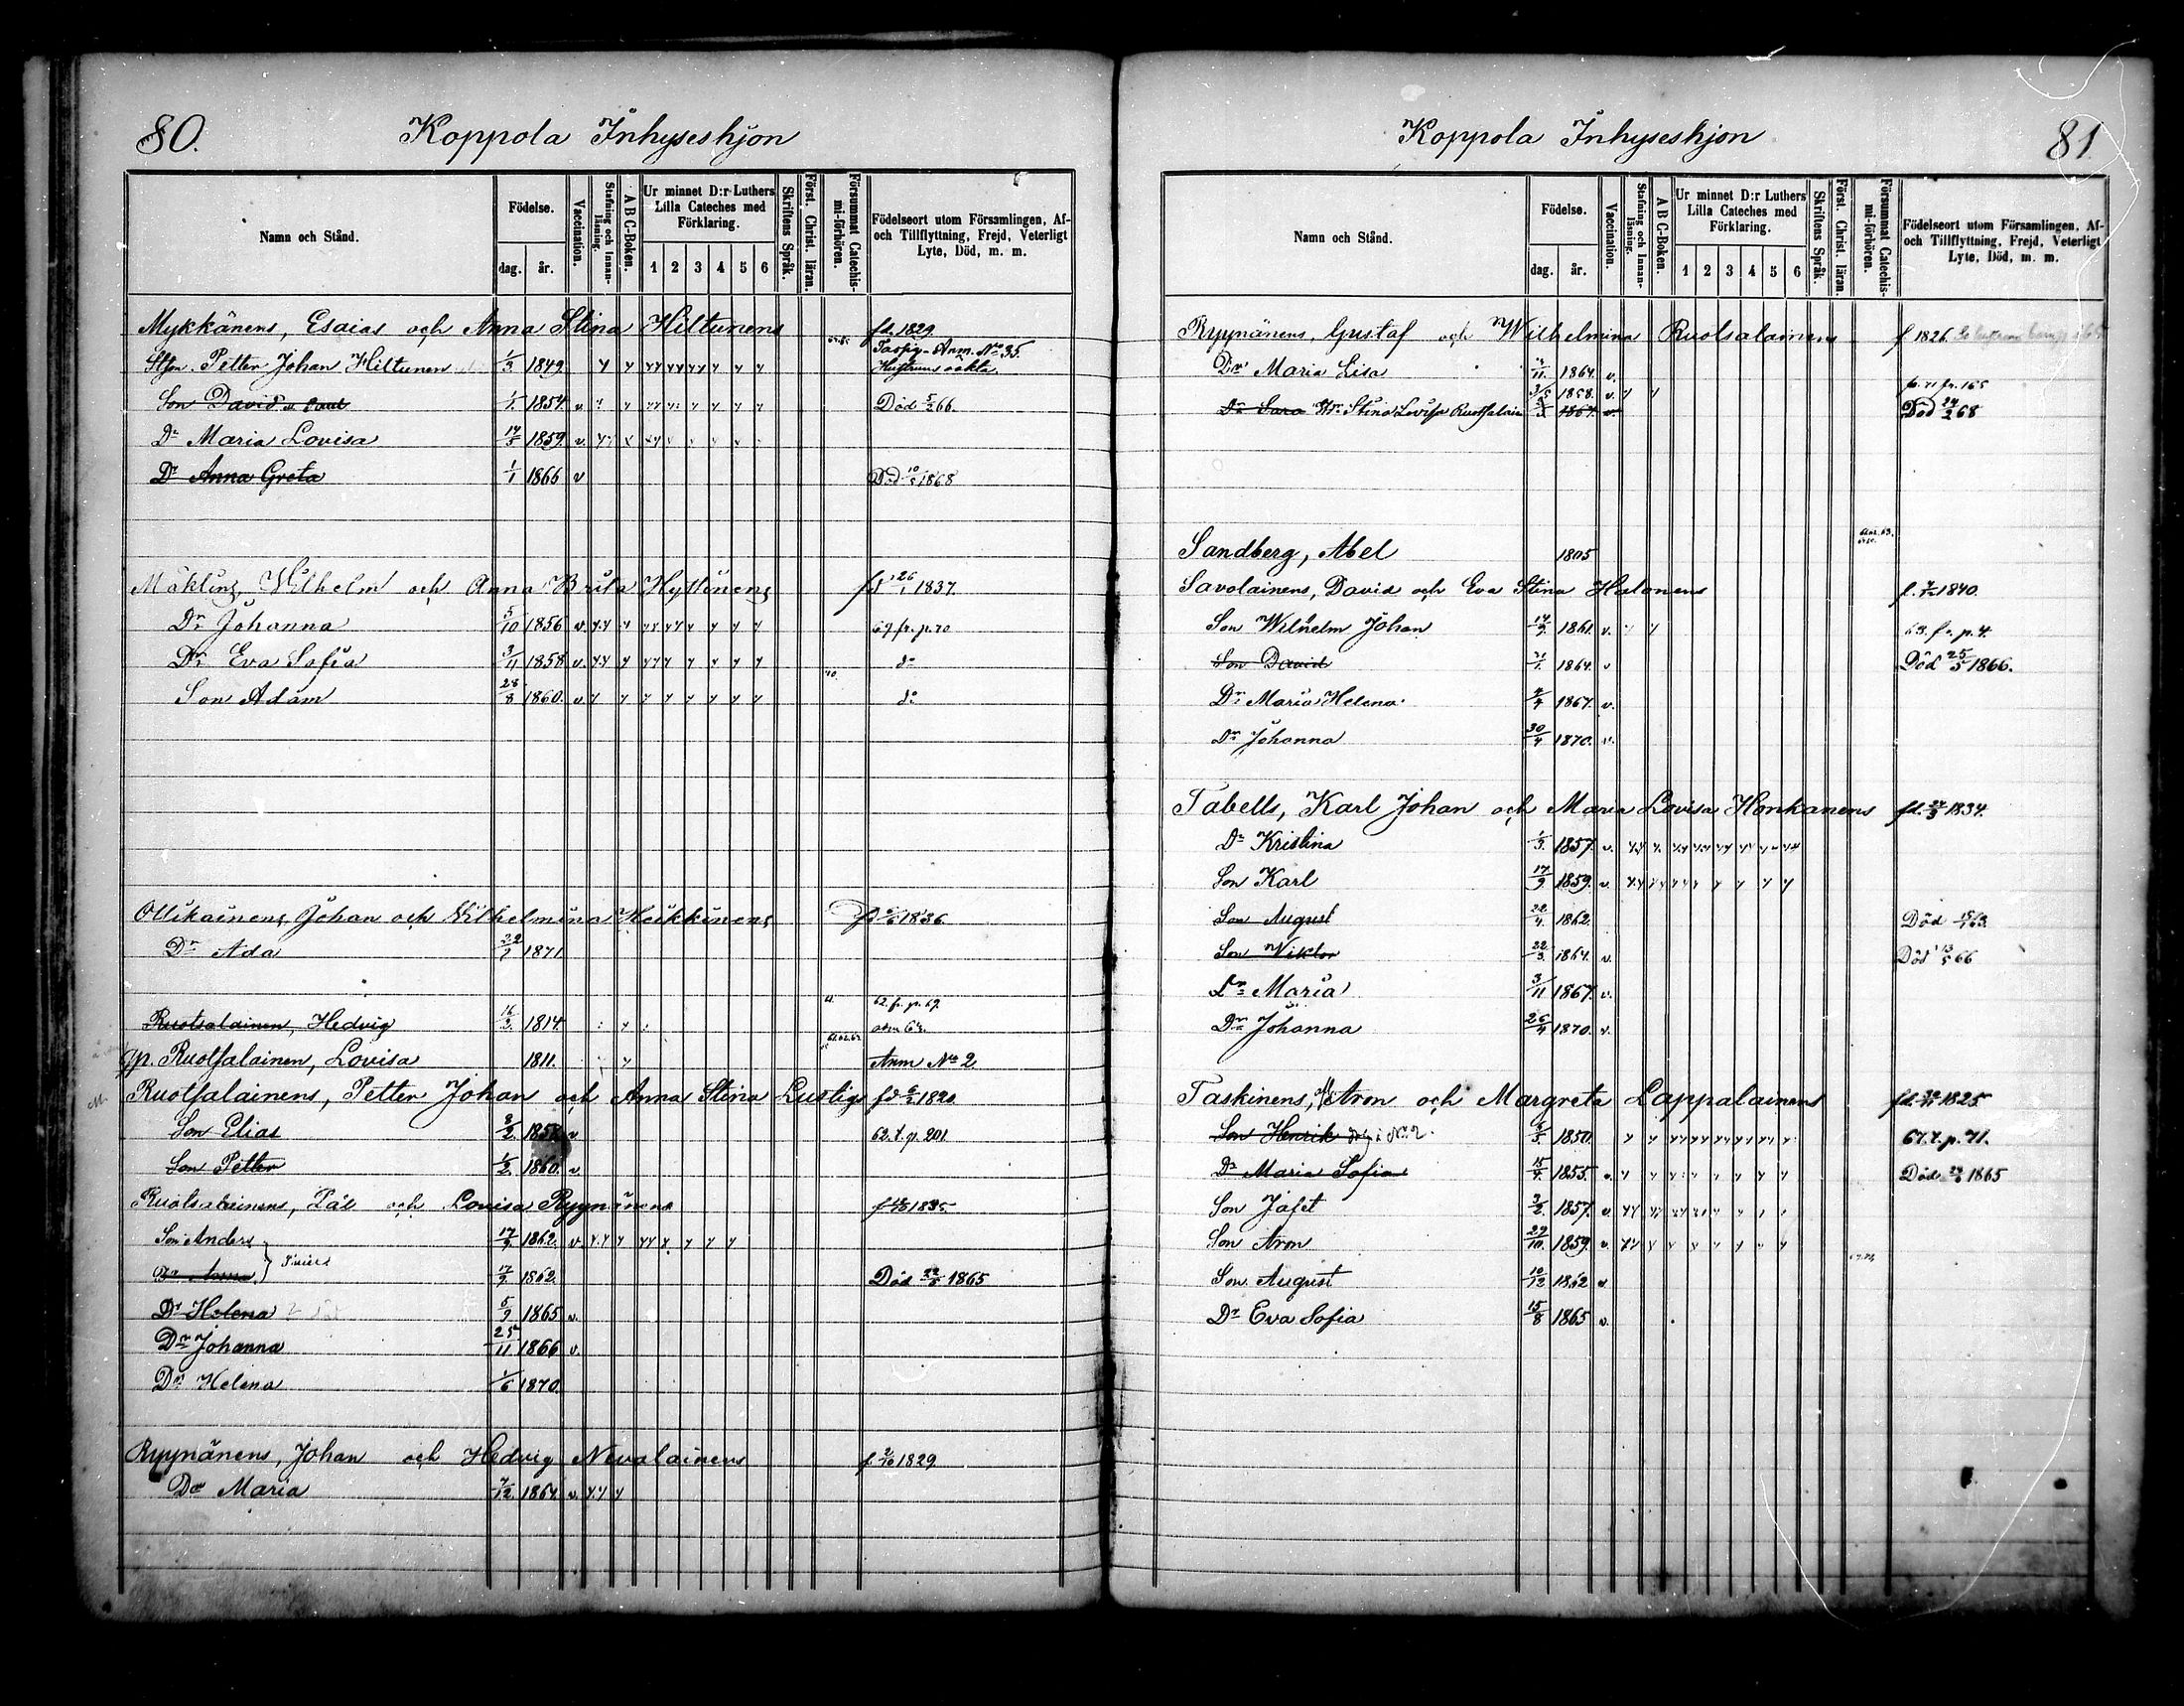 80.
Koppola Inhyseshjon
Namn och Stånd.
Födelse.
dag. år.
Vaccination.
Stafning och Innanläsning.
A B C-Boken.
Ur minnet D:r Luthers Lilla Cateches med Förklaring.
1 2 3 4 5 6
Skriftens Språk.
Först. Christ. läran.
Försummat Catechismi-förhören.
Födelseort utom Församlingen, Af- och Tillflyttning, Frejd, Veterligt Lyte, Död, m. m.
Mykkänens, Esaias och Anna Stina Hiltunens fd. 1829
Petter Johan Hiltunen 1/3 1849 Anm. No 35.
Son David 1854. v Död 5/2 66.
Dr Maria Lovisa 14/5 1859. v.
Dr Anna Greta 1/1 1866 v Död 1868
Mäklins, Wilhelm och Anna Brita Hyttinens fd 26/1 1837.
Dr Johanna 5/10 1856 v. 69 fr. p. 70
Dr Eva Sofia 3/11 1858 v. do
Son Adam 28/8 1860. v do
Ollikainens Johan och Wilhelmina Heikkinens 1836.
Dr Ada 1871
62. fr. p. 69
Ruotsalainen, Hedvig 16/3. 1814.
Ruotsalainen, Lovisa 1811. Anm No 2
Ruotsalainens, Petter Johan och Anna Stina Lustigs fd 1820.
Son Elias 2/2. 1858 v 62. t. p. 201
Son Petter 1/2. 1860. v
Ruotsalainens, Pål och Lovisa Ryynänens 1835
Son Anders 17/9 1862. v.
Dr Anna 17/9 1862. Död 1865
Dr Helena 5/9 1865 v.
Dr Johanna 25/11 1866 v.
Dr Helena 1/6 1870
Ryynänens, Johan och Hedvig Nevalainens f 2/10 1829
Dr Maria 7/12. 1864 v.
Koppola Inhyseshjon
81.
Namn och Stånd.
Födelse.
dag. år.
Vaccination.
Stafning och Innanläsning.
A B C-Boken.
Ur minnet D:r Luthers Lilla Cateches med Förklaring.
1 2 3 4 5 6
Skriftens Språk.
Först. Christ. läran.
Försummat Catechismi-förhören.
Födelseort utom Församlingen, Af- och Tillflyttning, Frejd, Veterligt Lyte, Död, m. m.
Ryynänens, Gustaf och Wilhelmina Ruotsalainens f 1826.
Dr Maria Lisa 1864. v.
Dr Sara Stina Lovisa 1858. v. Död 24/2 68
Sandberg, Abel 1805
Savolainens, David och Eva Stina Halonens 1840.
Son Wilhelm Johan 1861. v. fr. p. 4.
Son David 1864. v Död 25/5 1866.
Dr Maria Helena 1867. v.
Dr Johanna 30/4 1870. v.
Tabells, Karl Johan och Maria Lovisa Honkanens fd. 1834.
Dr Kristina 1/3. 1857. v.
Son Karl 17/9 1859. v.
Son August 22/4. 1862. Död 63.
Son Wiktor 22/3. 1864. v. Död 13/5 66
Dr Maria 3/11 1867. v.
Dr Johanna 26/4 1870. v.
Taskinens, Aron och Margreta Lappalainens fd. 1825
Son Henrik 1850. 67. t. p. 71.
Dr Maria Sofia 1855. v. Död 1865
Son Jafet 3/2. 1857. v.
Son Aron 29/10. 1859. v.
Son August 10/12 1862 v
Dr Eva Sofia 15/8 1865 v.